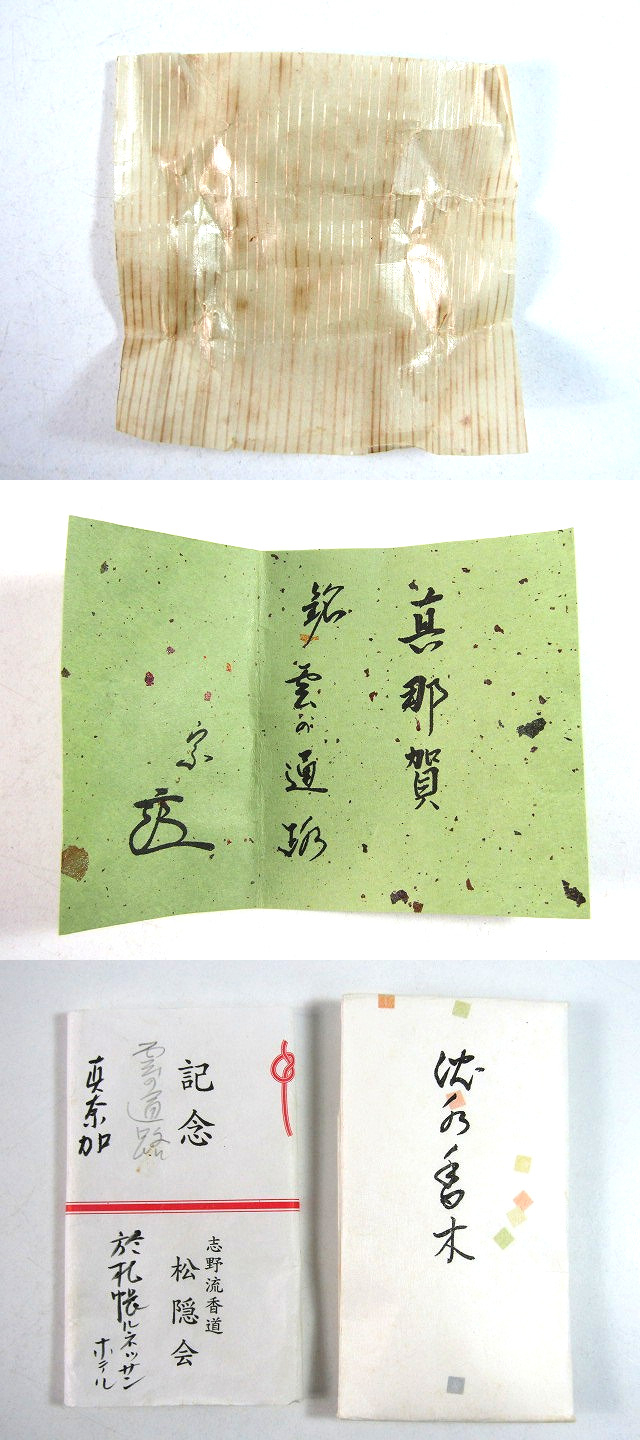 真那賀
銘
雲の通路
宗
記念
雲の通路
真奈加
志野流香道
松隠会
於札幌ルネッサンホテル
沈水香木